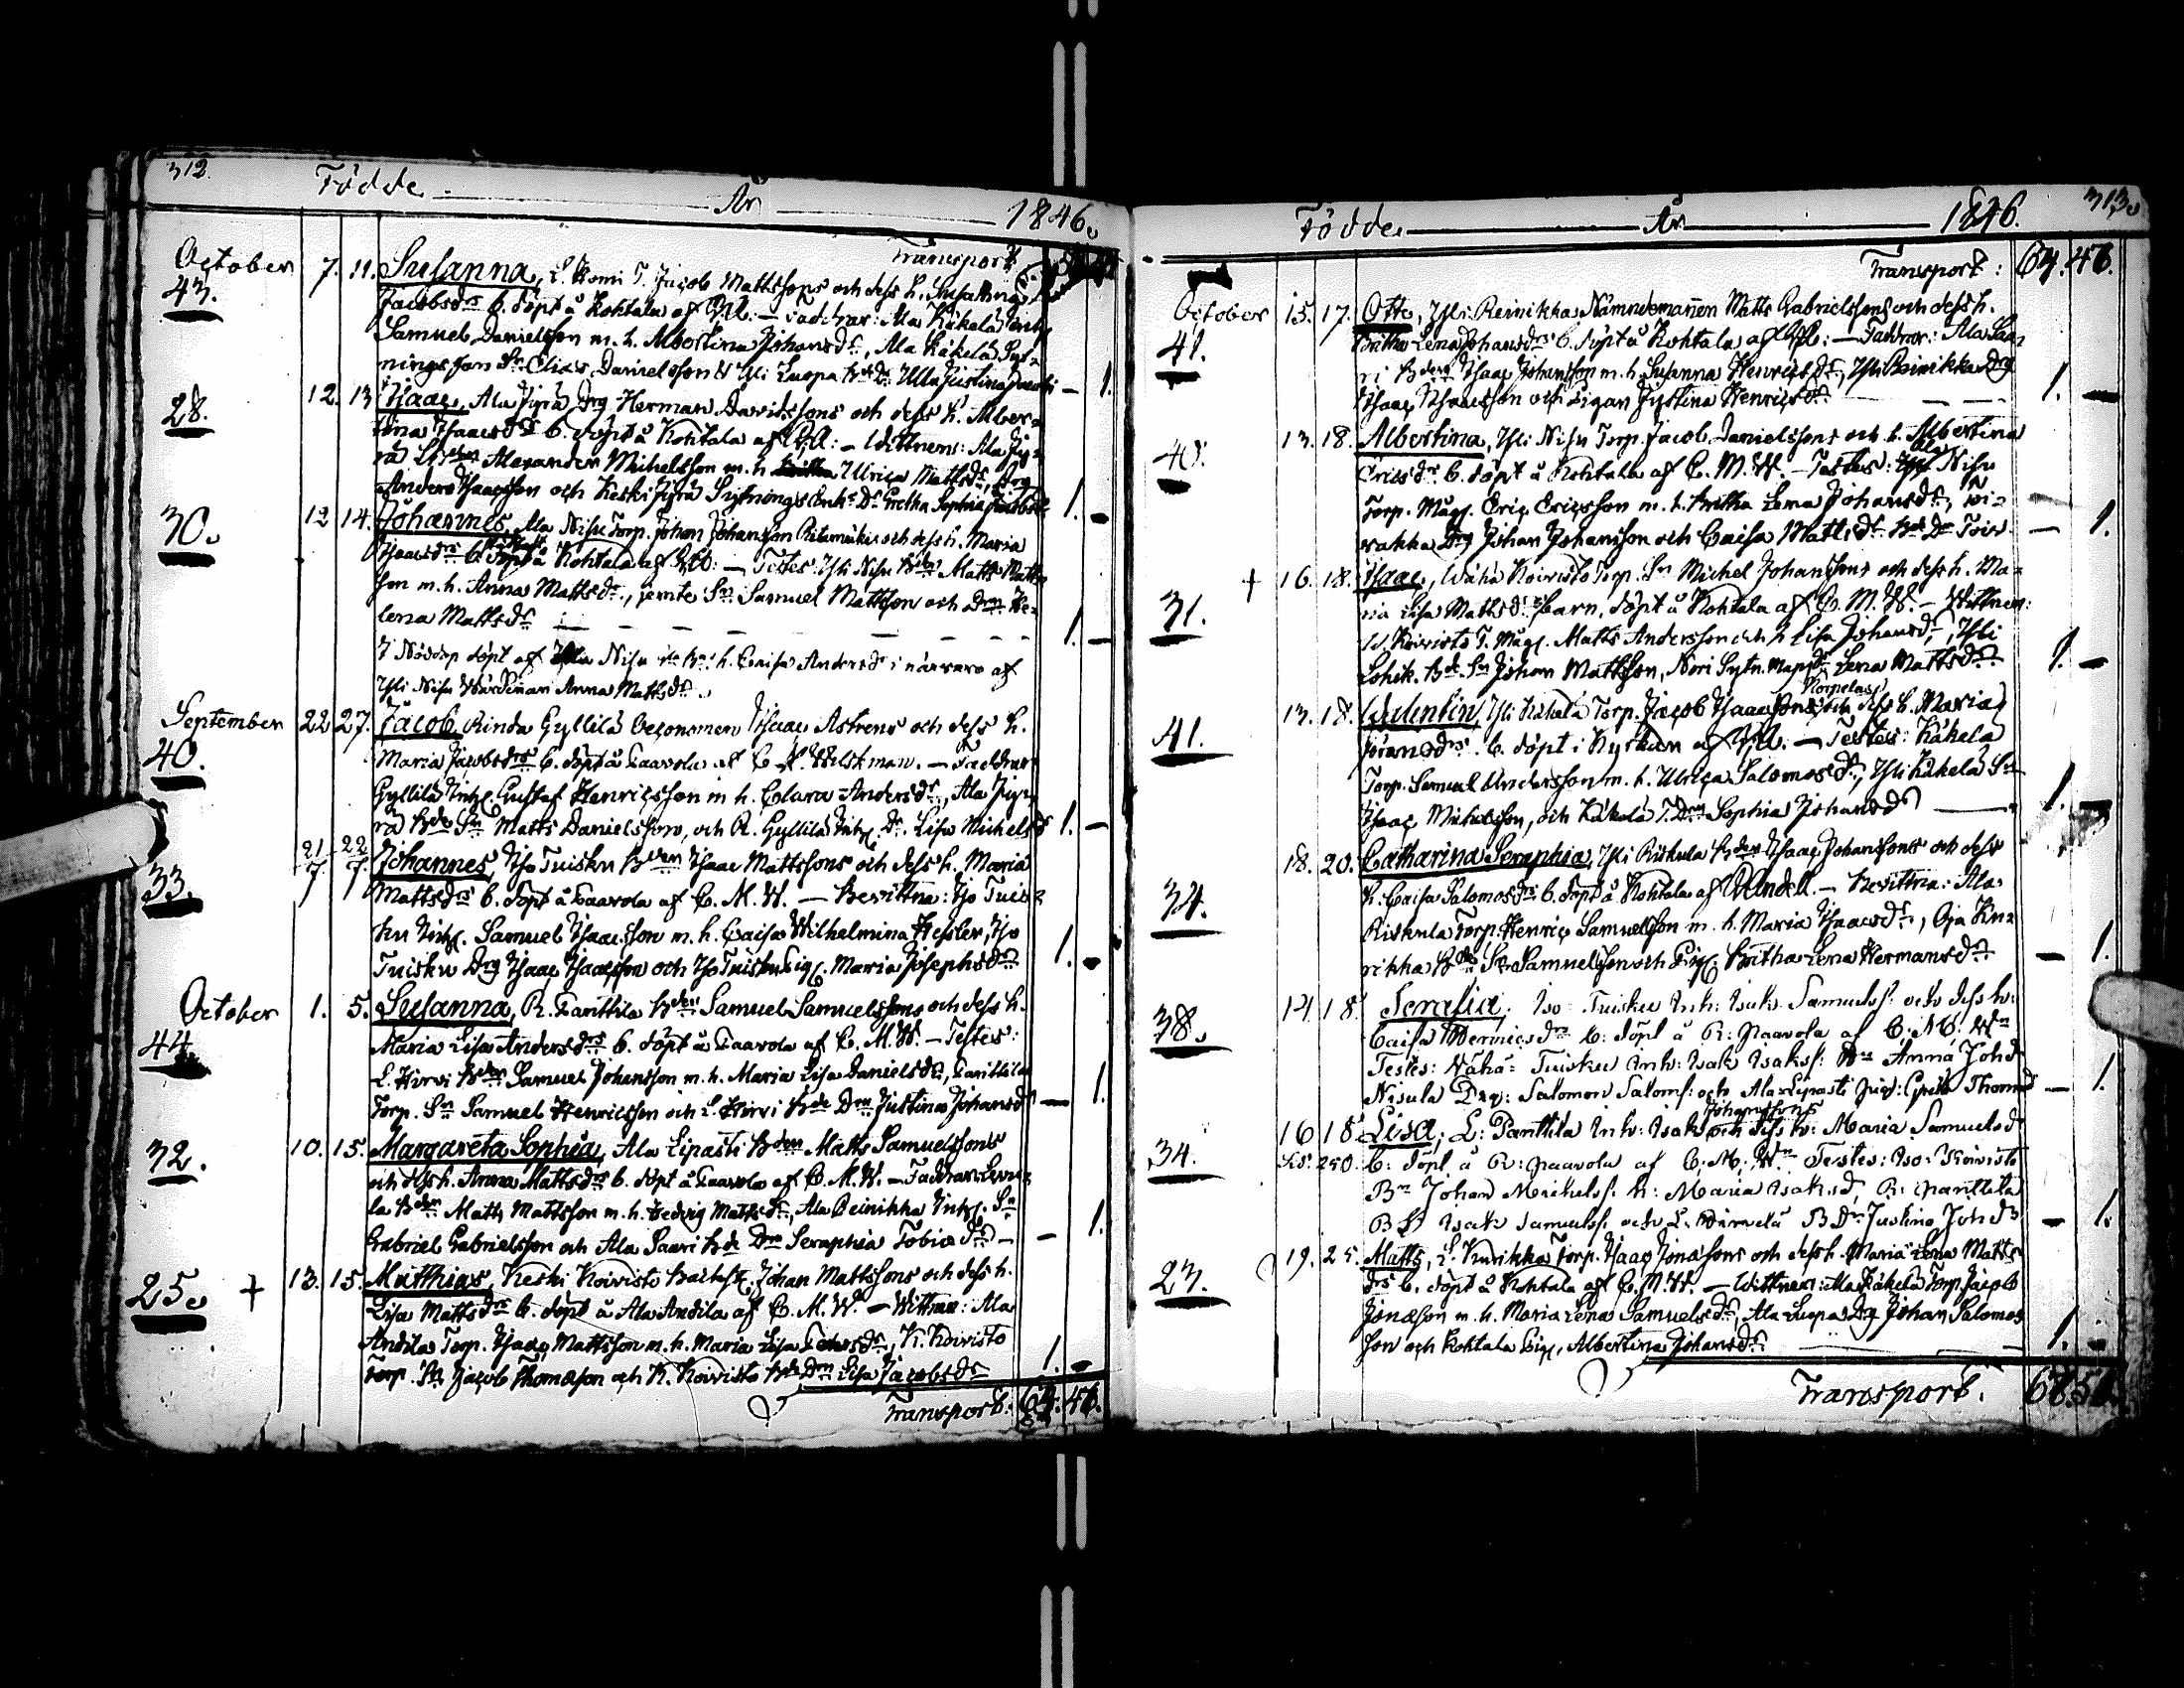 312.
Födde År 1846.
Transport
October 7. 11. Susanna, L. Hemi T. Jacob Mattssons och dess h. Susanna
43.
Jacobsdrs b. döpt å Kohtala af — Faddrar: Ala Käkelä Inh.
Samuel Danielsson m. h. Albertina Johansdr, Ala Käkelä Syt-
ningsson Sn Elias Danielsson & Yli Luopa Bde Dr Ulla Justina Jacobs — 1.
12. 13 Isaac, Ala Jyrä Drg Herman Davidssons och dess h. Alber-
28.
tina Isaacsdrs b. döpt å Kohtala af — Wittnen: Ala Jy-
rä Alexander Michelsson m. h. Ulrica Mattsdr, Drg
Anders Isaacsson och Keski Jyrä Sytnings Enk. Dr Gretha Sophia Jacobsdr 1. —
12 14. Johannes, Ala Nisu Torp. Johan Johansson Ritamäkis och dess h. Maria
30.
Isaacsdrs b. döpt å Kohtala af — Testes: Yli Nisu Bden Matts Matts-
son m. h. Anna Mattsdr, jemte Sn Samuel Mattsson och Drn He-
lena Mattsdr — — — — — — 1. —
I Nöddop döpt af Nisu h. Caisa Andersdr i närvaro af
Yli Nisu Värdinan Anna Mattsdr.
September 22 27. Jacob, Rinda Gyllilä Oeconomen Isaac Astrens och dess h.
40.
Maria Jacobsdrs b. döpt å Paavola af C. M. Wilskman. — Faddrar:
Gyllilä Inh. Gustaf Henricsson m h. Clara Andersdr, Ala Jyr-
rä Bde Sn Matts Danielsson, och R. Gyllilä Inh. Dr. Lisa Michelsd 1. —
21/7 22/7 Johannes, Iso Tuisku Bden Isaac Mattssons och dess h. Maria
33.
Mattsdrs b. döpt å Paavola af C. M. W. — Bevittna: Iso Tuis-
ku Inh. Samuel Isaacsson m. h. Caisa Wilhelmina Hesler, Iso
Tuisku Drg Isaac Isaacsson och Iso Tuisku Pig. Maria Josephsdr 1. —
October 1. 5. Susanna, R. Panttila Bden Samuel Samuelssons och dess h.
44.
Maria Lisa Andersdrs b. döpt å Paavola af C. M. W. — Testes:
L. Hirvi Bden Samuel Johansson m. h. Maria Lisa Danielsdr, Panttila
Torp. Sn Samuel Henricsson och L. Hirvi Bde Drn Justina Johansdr — 1.
10. 15. Margareta Sophia, Ala Lipasti Bden Matts Samuelssons
32.
och dess h. Anna Mattsdrs b. döpt å Paavola af C. M. W. — Faddrar:
la Bden Matts Mattsson m. h. Hedvig Mattsdr, Ala Reinikka Inh. Sn
Gabriel Gabrielsson och Ala Saari Bde Drn Seraphia Tobiasdr — — 1.
+ 13. 15. Matthias, Keski Koivisto Johan Mattssons och dess h.
25.
Lisa Mattsdrs b. döpt å Ala Andila af C. M. W. — Wittnen: Ala
Andila Torp. Isaac Mattsson m. h. Maria Lisa, K. Koivisto
Torp. Sn Jacob Thomasson och K. Koivisto Bde Drn Lisa Jacobsdr 1. —
Transport: 64. 46.
Födde År 1846. 313.
Transport: 64. 46.
October 15. 17. Otto, Yli Reinikka Nämndemannen Matts Gabrielssons och dess h.
41.
Britha Lena Johansdrs b. döpt å Kohtala af — Faddrar: Ala Saa-
ri Bden Isaac Johansson m. h. Susanna Henricsdr, Yli Reinikka Drg
Isaac Isaacsson och Pigan Justina Henricsdr. — 1. —
13. 18. Albertina, Yli Nisu Torp. Jacob Danielssons och h. Albertina
40.
Ericsdrs b. döpt å Kohtala af C. M. W. — Testes: Ala Nisu
Torp. Måg. Eric Ericsson m. h. Britha Lena Johansdr,
Drg Johan Johansson och Caisa Mattsdr — 1.
+ 16. 18. Isaac, Wähä Koivisto Torp. Sn Michel Johanssons och dess h. Ma-
31.
ria Lisa Mattsdrs barn, döpt å Kohtala af C. M. W. — Wittnen:
W. Koivisto T. Måg. Matts Andersson och h Lisa Johansdr, Yli
Bde Sn Johan Mattsson, Lena Mattsdr. 1. —
Korpelas
13. 18. Valentin, Yli Käkelä Torp. Jacob Isaacssons och dess h. Maria
41.
Jöransdrs b. döpt i Kyrkan af — Testes: Käkelä
Torp. Samuel Andersson m. h. Ulrica Salomosdr, Yli Käkelä Sn
Isaac Michelsson, och Käkelä T. Drn Sophia Johansdr — 1. —
18. 20. Catharina Seraphia, Yli Riskula Bden Isaac Johanssons och dess
34.
h. Caisa Salomosdrs b. döpt å Kohtala af Wandell. — Bevittna: Ala
Riskula Torp. Henric Samuelsson m. h. Maria Isaacsdr, Oja Ku-
rikka Bde Sn Samuelsson och Pig. Britha Lena Hermansdr — 1.
14. 18. Serafia, Iso Tuisku Inh: Isak Samuelss: och dess h:
38.
Caisa Henricsdrs b: döpt å R: Paavola af C: M: Wn
Testes: Wähä Tuisku Inh: Isak Isakss: Anna Johsdr
Nisula Drg: Salomon Saloms: och Ala Lipasti Pig: Greta Thomsd — 1.
Johanssons
16 18 Lisa, L: Panttila Inh: Isak och dess h: Maria Samuelsdr
34.
b: döpt å R: Paavola af C: M: Wn Testes: Iso Koivisto
Bn Johan Michelss: h: Maria Isaksd, R: Panttila
B S. Isak Samuelss: och L: Hirvelä B Dr Justina Johsdr — 1.
19. 25. Matts, L. Kurikka Torp. Isaac Jonassons och dess h. Maria Lena Matts-
23.
drs b. döpt å Kohtala af C. M. W. — Wittnen: Ala Käkelä Torp. Jacob
Jonasson m. h. Maria Lena Samuelsdr, Ala Luopa Drg Johan Salomos-
son och Kohtala Pig. Albertina Johansdr. — 1. —
Transport. 68. 51.